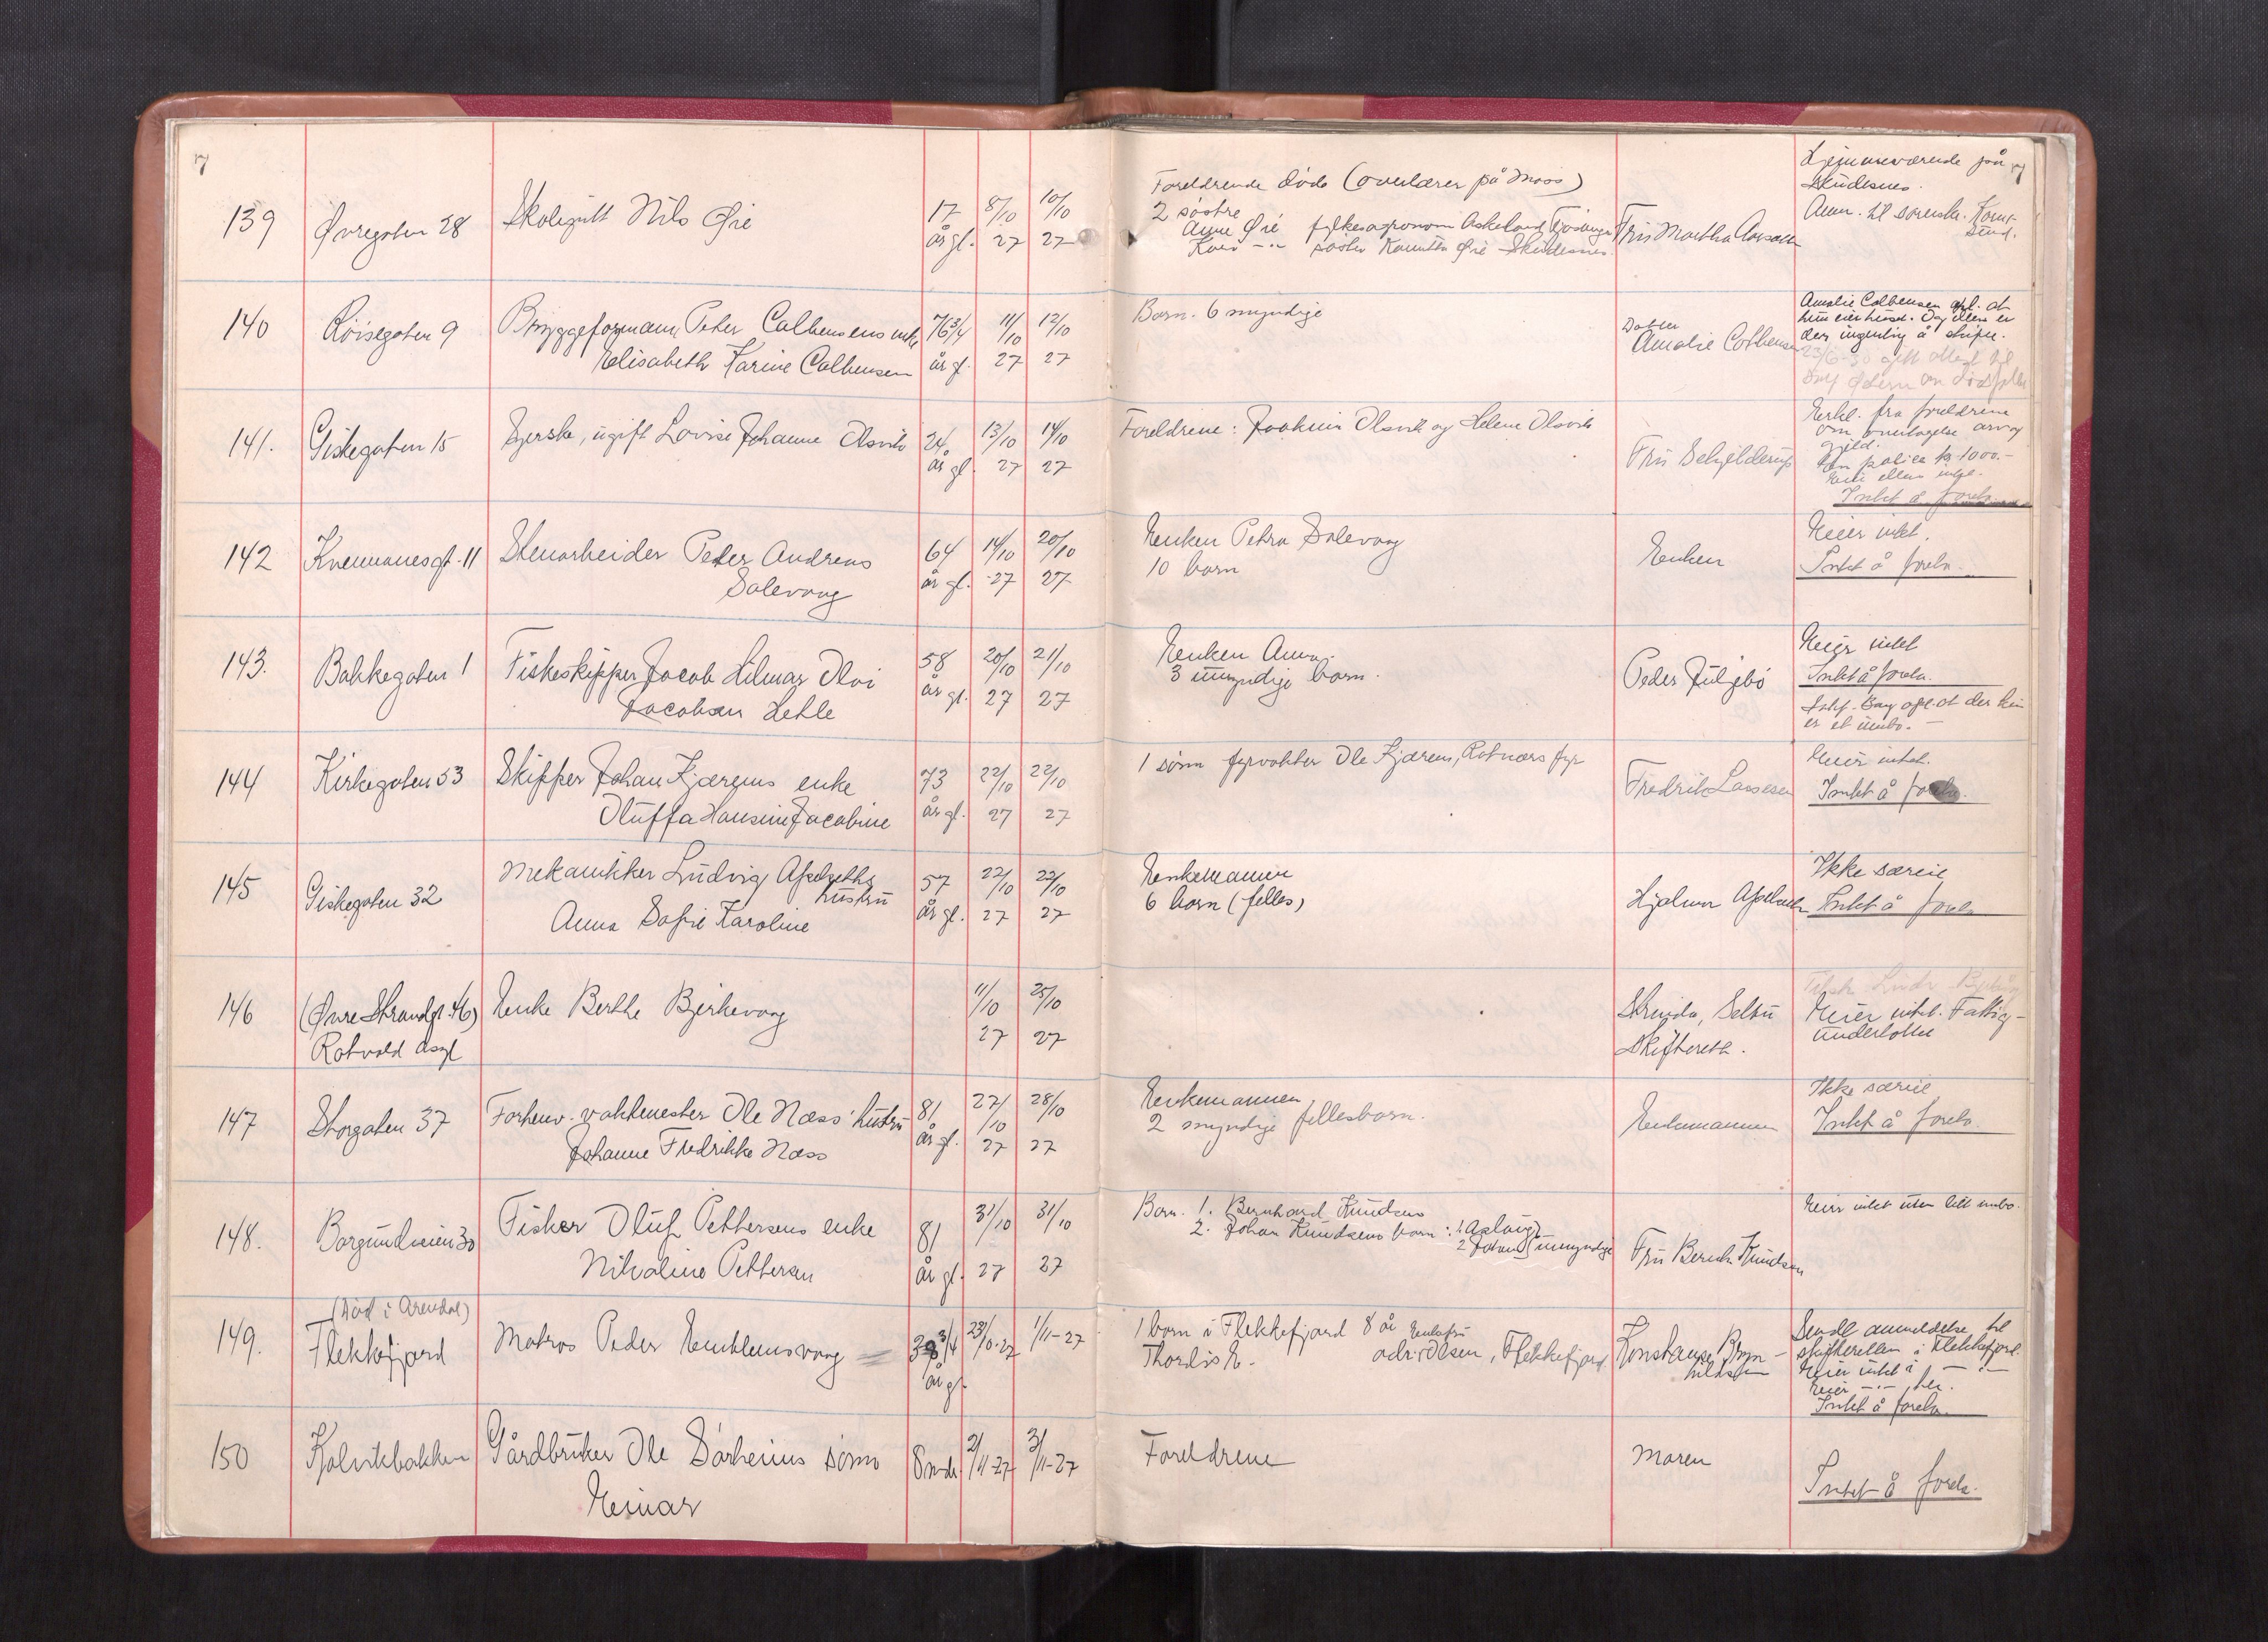 7
139
Øvregaten 28
Skolegutt Nils Øie
17
år gl.
8/10
27
10/10
27
Foreldrende døde (overlærer på Moss)
2 søstre
Anne Øie fylkesagronom Askeland
Kari -"- søster Øie Skudesnes
Fru Martha
Hjemmeværende på
Skudesnes.
Anm. til sorensk.
140
Røisegaten 9
Bryggeformann Peter Colbensens enke
Elisabeth Karine Colbensen
76 3/4
år gl.
11/10
27
12/10
27
Barn. 6 myndige
Datter
Amalie Colbensen
Amalie Colbensen opl. at
hun eier huset.
der ingenting å skifte.
141.
Giskegaten 15
Syerske, ugift Lovise Johanne Olsvik
24
år gl.
13/10
27
14/10
27
Foreldrene: Joakim Olsvik og Helene Olsvik
Fru Schjelderup
Erkl. fra foreldrene
om overtagelse arv og
gjeld.
police kr 1000.-
Eier ellers intet.
Intet å foreta.
142
Kvennanesgt. 11
Stenarbeider Peder Andreas
Salevaag
64
år gl.
14/10
-27
20/10
27
Enken Petra Salevaag
10 barn
Enken
Eier intet.
Intet å foreta.
143.
Bakkegaten 1
Fiskeskipper Jacob Hilmar Olai
Jacobsen Hehle
58
år gl.
20/10
27
21/10
27
Enken Anna.
3 umyndige barn.
Peder Fuljebø
Eier intet
Intet å foreta.
opl. at der kun
er et innbo. -
144
Kirkegaten 53
Skipper Johan Kjærems enke
Oluffa Hansine Jacobine
73
år gl.
22/10
27
22/10
27
1 sønn fyrvokter Ole Kjærem, Rotnæs fyr
Fredrik Lassesen
Eier intet.
Intet å foreta.
145
Giskegaten 32
Mekanikker Ludvig Apelseths
hustru
Anna Sofie Karoline
57
år gl.
22/10
27
22/10
27
Enkemannen
6 barn (felles)
Hjalmar Apelseth
Ikke særeie
Intet å foreta
146
(Øvre Strandgt. 46)
Rotvold asyl
Enke Berthe Bjerkevaag
11/10
27
25/10
27
Strinda, Selbu
Skifterett.
Eier intet. Fattig-
understøttet
147
Storgaten 37
Forhenv. vaktmester Ole Næss' hustru
Johanne Fredrikke Næss
81
år gl.
27/10
27
28/10
27
Enkemannen
2 myndige fellesbarn.
Enkemannen
Ikke særeie
Intet å foreta.
148.
Borgundveien 30
Fisker Oluf Pettersens enke
Nikoline Pettersen
81
år gl.
31/10
27
31/10
27
Barn. 1. Bernhard Knudsen
2. Johan Knudsens barn: 1 Aslaug
2 Johan umyndige
Fru Bernh. Knudsen
Eier intet uten litt innbo.
149.
(Død i Arendal)
Flekkefjord
Matros Peder Emblemsvaag
38 3/4
år gl.
1/11-27
1 barn i Flekkefjord 8 år
Thordis E.
Enkefru
adr: Olsen, Flekkefjord.
Konstanse Bryn-
hildsen
Sendt anmeldelse til
skifteretten i Flekkefjord.
Eier intet i -"-
Eier -"- her.
Intet å foreta.
150
Kolvikbakken
Gårdbruker Ole Sørheims sønn
Einar
8 mdr.
2/11-27
3/11-27
Foreldrene
Moren
Intet å foreta.